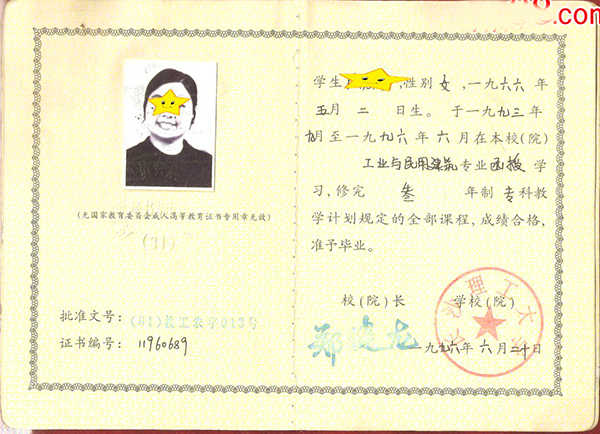 .com
(无国家教育委员会成人高等教育证书专用章无效)
批准文号：(81)教工农字013号
证书编号：11960689
学生 ,性别 女 ,一九六六 年
五月 二 日生。于一九九三年
九月至一九九六年 六 月在本校(院)
工业与民用建筑 专业 函授 学
习，修完 叁 年制 专科教
学计划规定的全部课程，成绩合格，
准予毕业。
校(院)长 学校(院)
一九九六年 六 月二十日
长沙理工大学